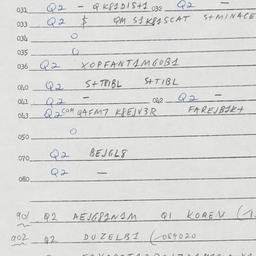 031 Q2 - QK81DIS+1 032 Q2 -
033 Q2 $ QM S1K81SCAT S+MINACE
034 0
035 0
036 Q2 XOPFANT1MG0B1
040 Q2 S+TRIBL S+TIBL
041 Q2 - 042 Q2 -
043 Q2 COM Q4CM7 K8EJV3R FAREJB1K+
050 0
070 Q2 BEJGL8
080 Q2 -
901 Q2 AEJG81N1M Q1 KOREN (1
902 Q2 DUZELB1 (084020